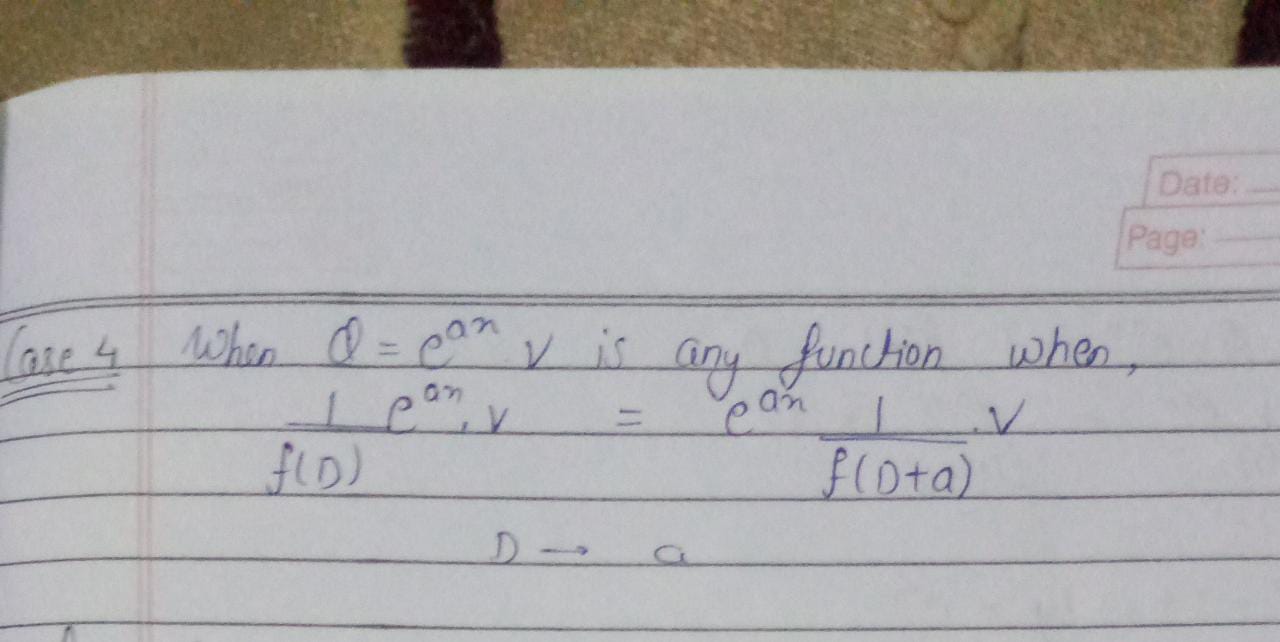 Date:
Page:
Case 4 When Q = e^{an} V is any function when,
\frac{1}{f(D)} e^{an} . V = e^{an} \frac{1}{f(D+a)} . V
D → a